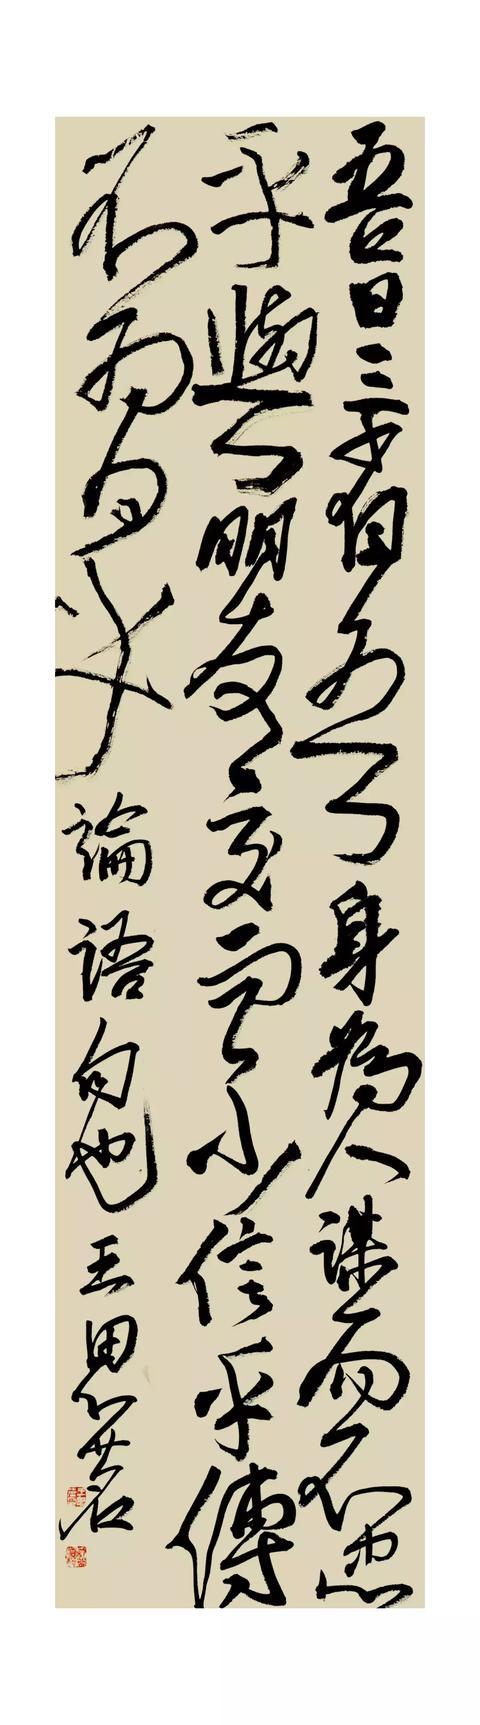 吾日三省吾身為人謀而不忠
乎與朋友交而不信乎傳
不習乎 論語句也 王思若